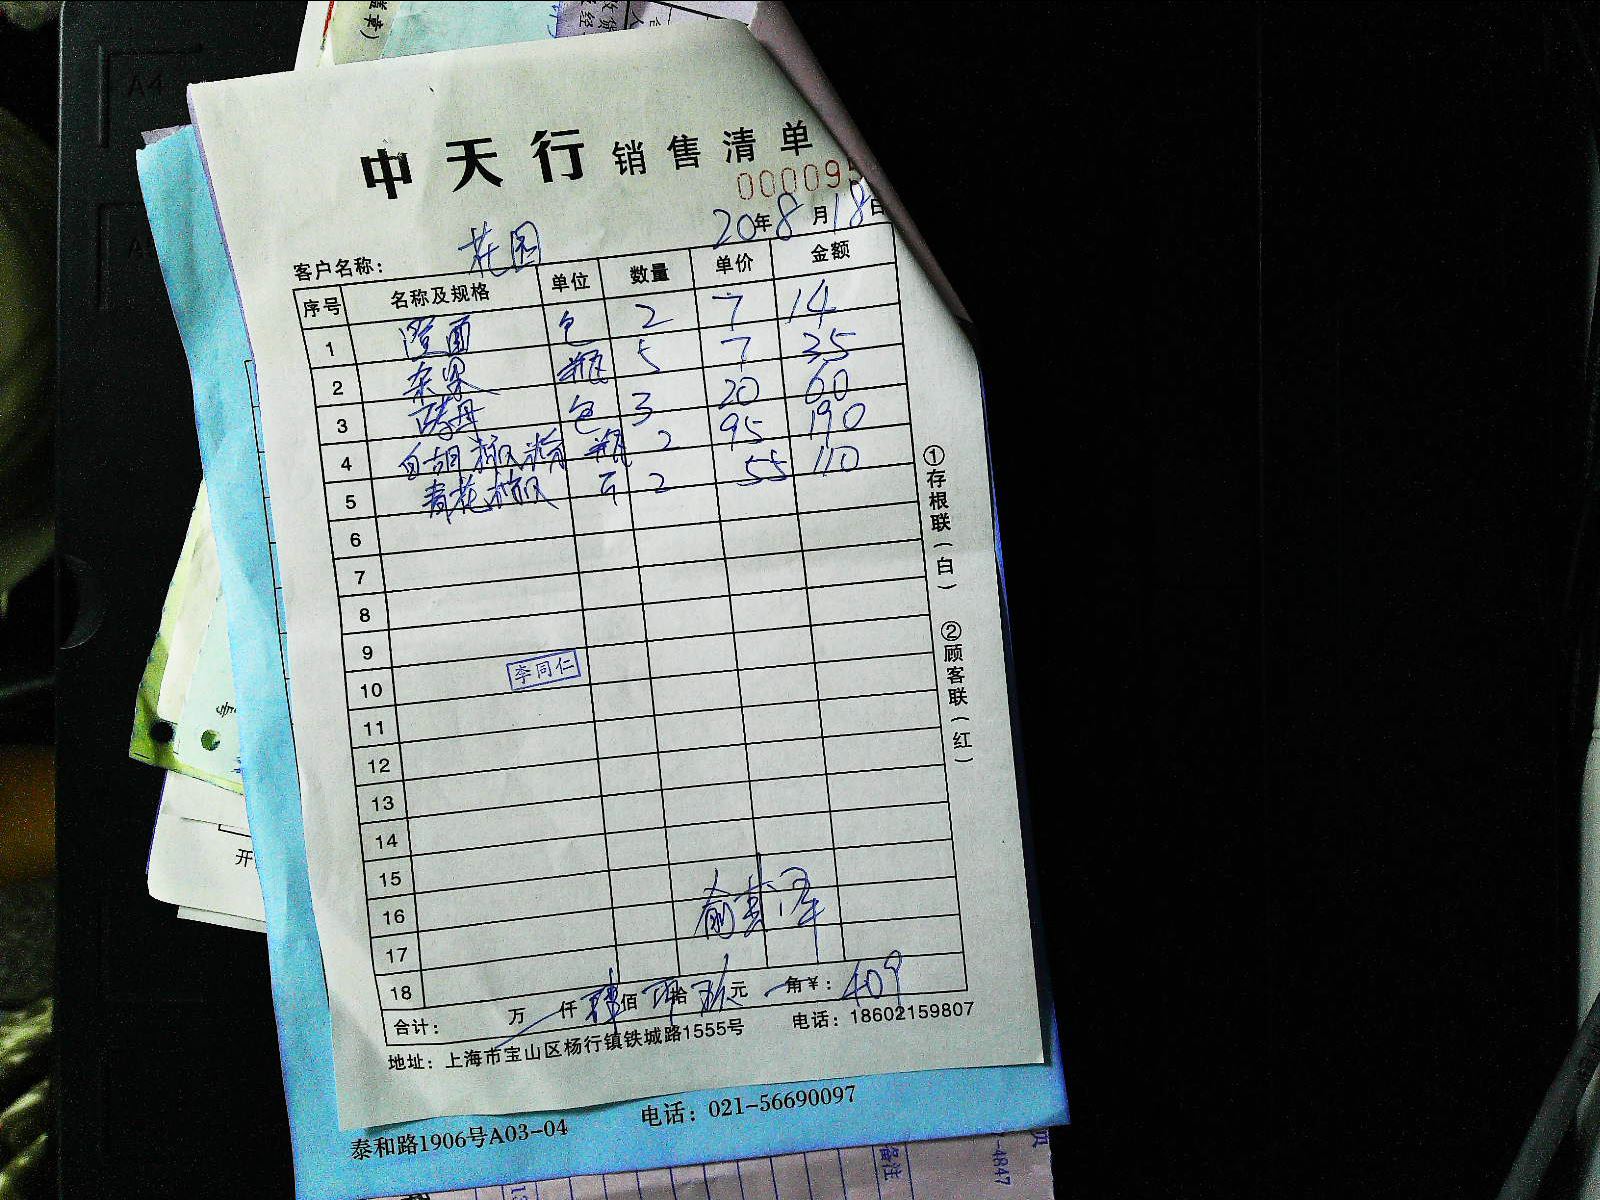 中天行 销售清单
00009
20年8月18日
客户名称: 花园
序号 名称及规格 单位 数量 单价 金额
1 澄面 包 2 7 14
2 杂果 瓶 5 7 35
3 酵母 包 3 20 60
4 白胡椒粉 瓶 2 95 190
5 青花椒 2 55 110
6
7
8
9
10 李同仁
11
12
13
14
15
16
17
18
合计: 万 仟 肆佰 拾 玖元 角¥: 409
地址: 上海市宝山区杨行镇铁城路1555号 电话: 18602159807
①存根联(白) ②顾客联(红)
泰和路1906号A03-04 电话: 021-56690097
备注
-4847
A4
开